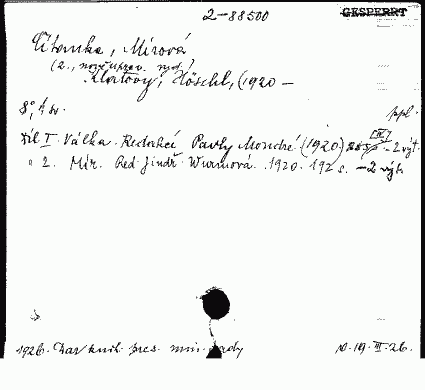 2-88500 GESPERRT
Čítanka, Mírová
(2., nově uprav. vyd.)
Klatovy, Höschl, (1920 –
8°, 4 sv. ppl.
Díl I. Válka. Redakcí Pavly Moudré (1920) [IV] – 2 výt.
" 2. Mír. Red. Jindř. Wurmová. 1920. 192 s. – 2 výt.
1926. Dar knih. pres. min. rady III-26.